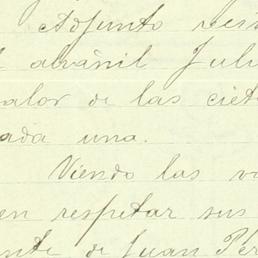 Adjunto
albañil Juli
valor de las siete
ada una.
Viendo las v
en respetar sus
nte de Juan Pér